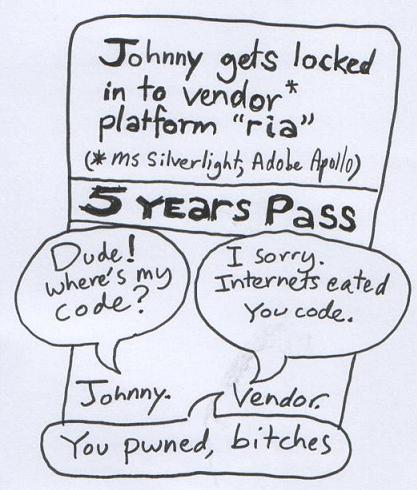 Johnny gets locked
in to vendor*
platform "ria"
(* ms Silverlight, Adobe Apollo)
5 YEARS PASS
Dude!
where's my
code?
I sorry.
Internets eated
You code.
Johnny.
Vendor.
You pwned, bitches